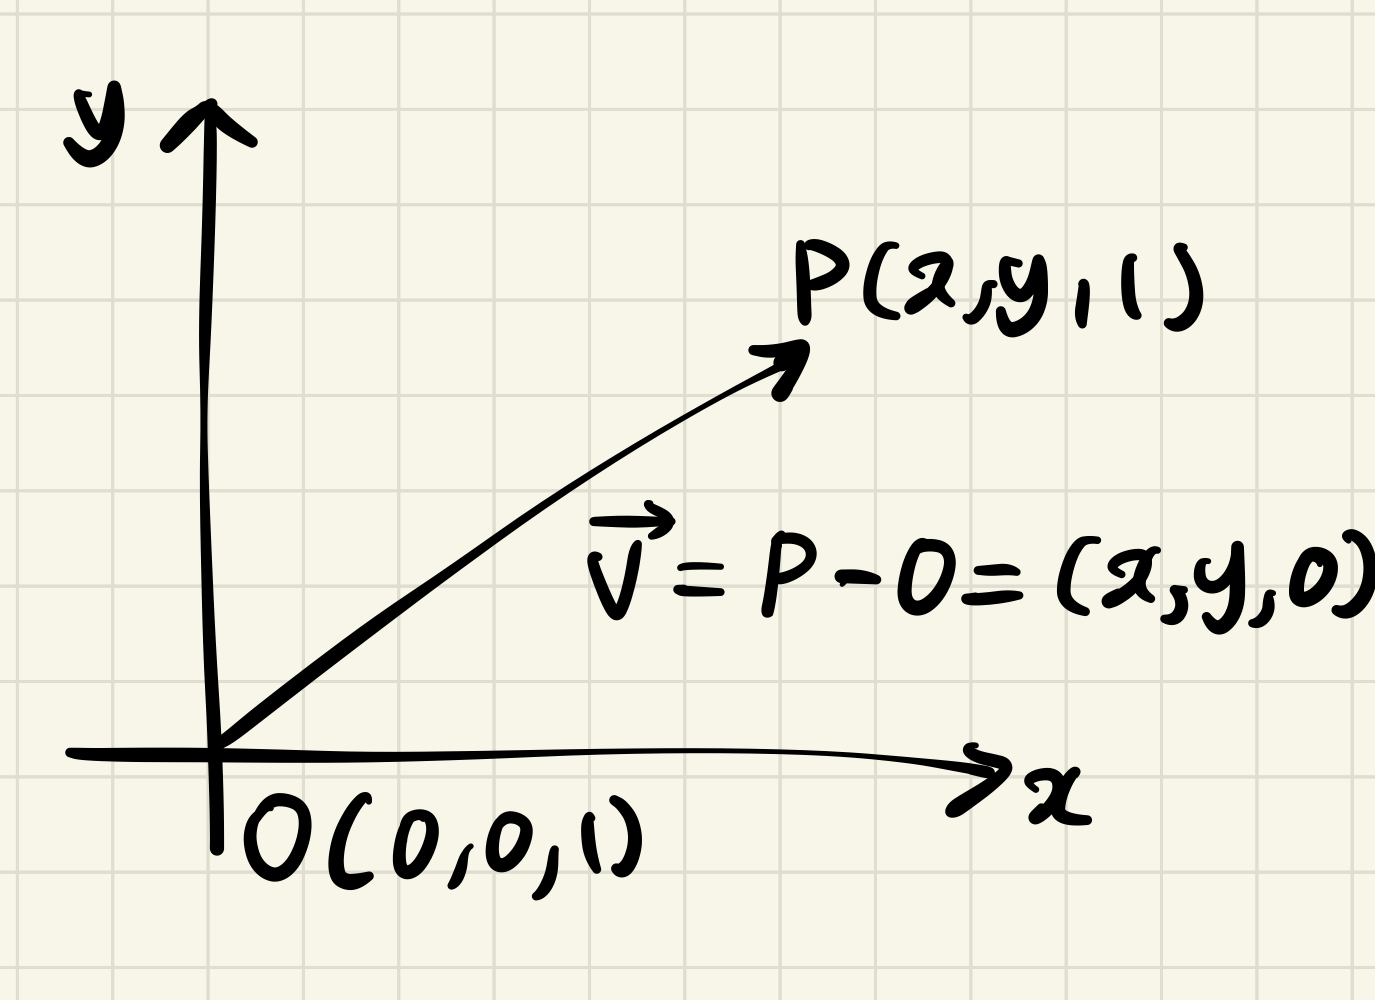 y
P(x,y,1)
V = P - O = (x,y,0)
x
O(0,0,1)